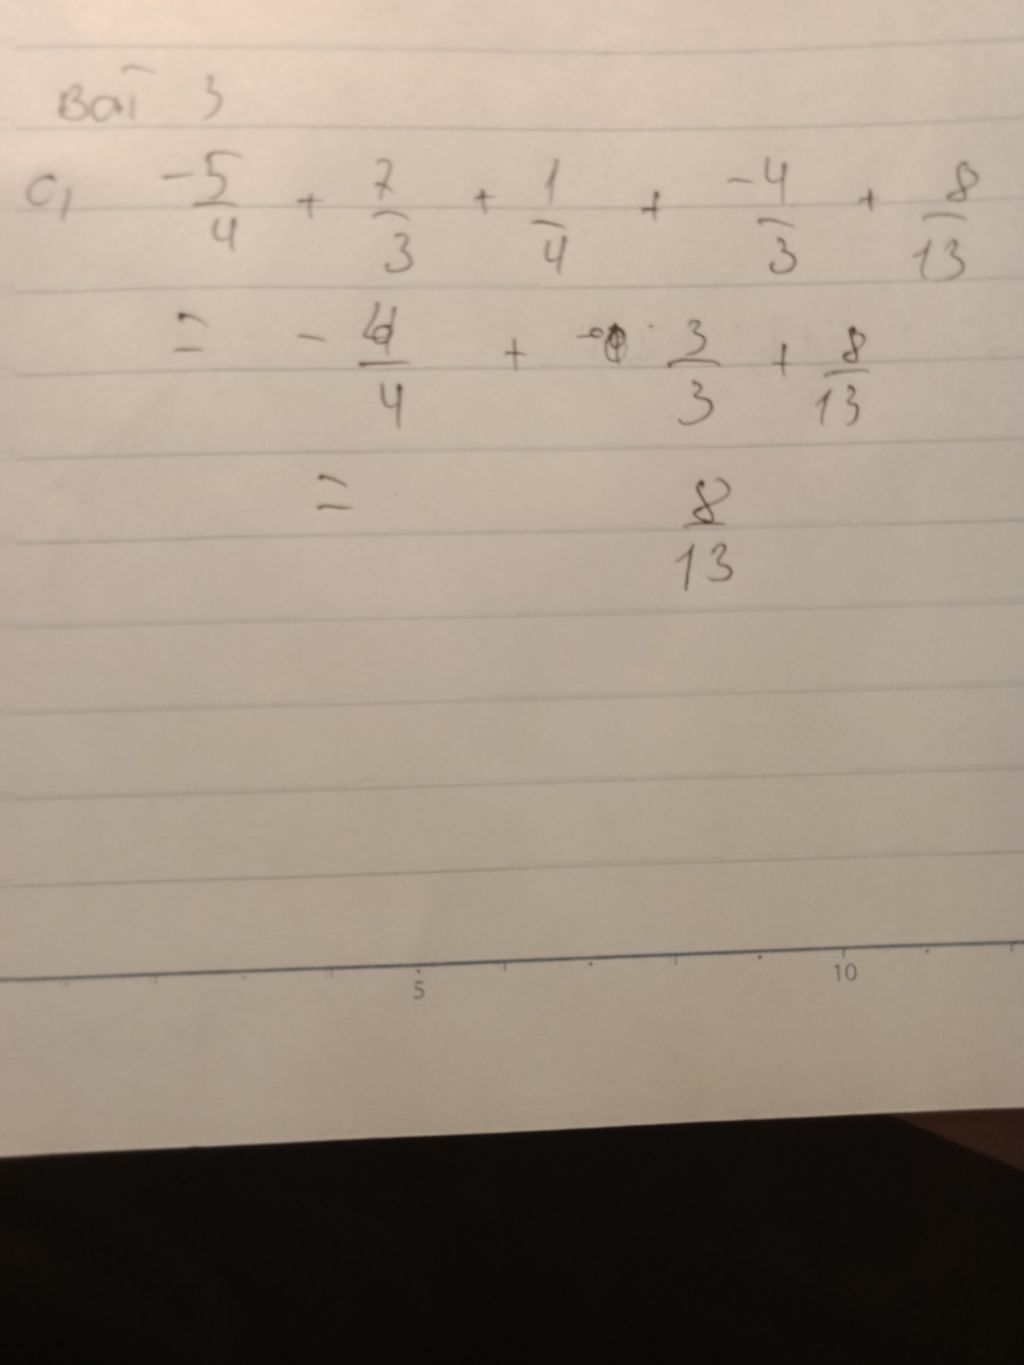 Bài 3
c, -5/4 + 7/3 + 1/4 + -4/3 + 8/13
= - 4/4 + 3/3 + 8/13
= 8/13
5 10